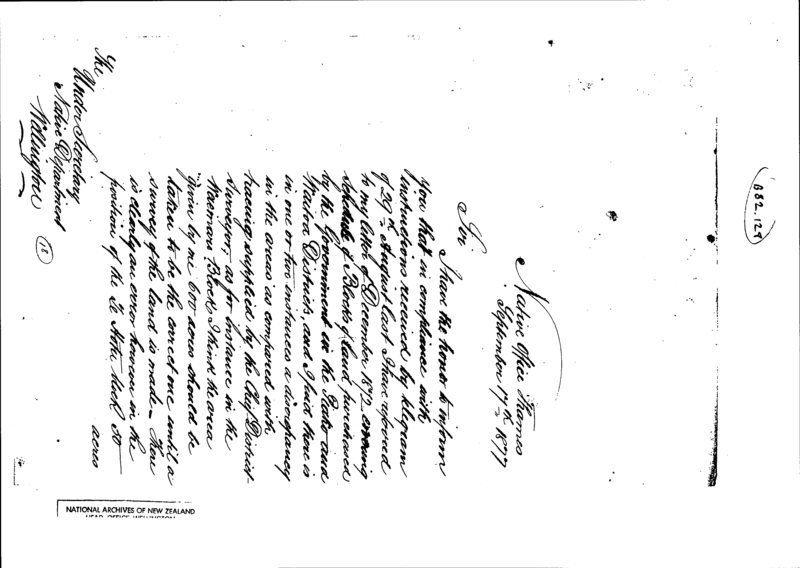 B82.129
Native Office Thames
September 17th 1877
Sir
I have the honor to inform
you that in compliance with
instructions received by telegram
of 29th August last I have referred
to my letter of December 1872 covering
schedule of Blocks of land purchased
by the Government in the Piako and
Waitoa Districts, and I find there is
in one or two instances a discrepancy
in the areas as compared with
tracing supplied by the Chief District
Surveyor, as for instance in the
Block I think the area
given by me 600 acres should be
taken to be the correct one until a
survey of the land is made – There
is clearly an error however in the
position of the Te block 50
acres
The
Under Secretary
Native Department
Wellington
18
NATIONAL ARCHIVES OF NEW ZEALAND
HEAD OFFICE WELLINGTON